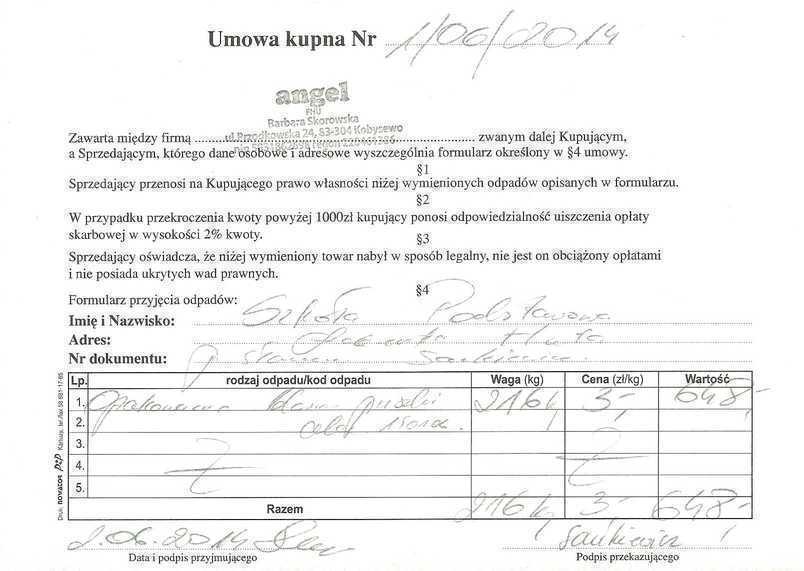 Umowa kupna Nr 1/06/2014
angel
FHU
Barbara Skorowska
ul.Przodkowska 24, 83-304 Kobysewo
Zawarta między firmą zwanym dalej Kupującym,
a Sprzedającym, którego dane osobowe i adresowe wyszczególnia formularz określony w §4 umowy.
§1
Sprzedający przenosi na Kupującego prawo własności niżej wymienionych odpadów opisanych w formularzu.
§2
W przypadku przekroczenia kwoty powyżej 1000zł kupujący ponosi odpowiedzialność uiszczenia opłaty
skarbowej w wysokości 2% kwoty.
§3
Sprzedający oświadcza, że niżej wymieniony towar nabył w sposób legalny, nie jest on obciążony opłatami
i nie posiada ukrytych wad prawnych.
§4
Formularz przyjęcia odpadów:
Imię i Nazwisko: Szkoła Podstawowa
Adres: Huta
Nr dokumentu:
Lp. rodzaj odpadu/kod odpadu Waga (kg) Cena (zł/kg) Wartość
1. 216 kg 3,- 648,-
2.
3.
4.
5.
Razem 216 kg 3,- 648,-
2.06.2014 Sankiewicz
Data i podpis przyjmującego Podpis przekazującego